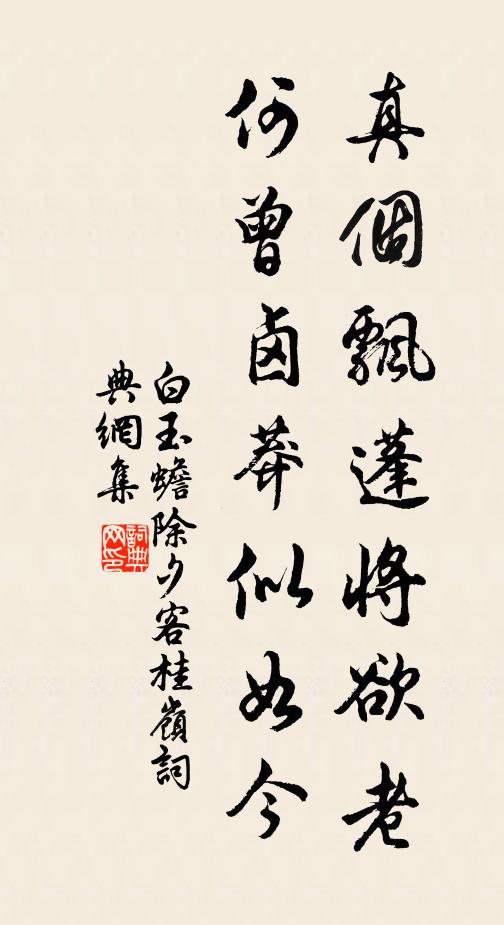 真個飄蓬將欲老
何曾鹵莽似如今
白玉蟾除夕客桂嶺詞
典網集
詞典
网印